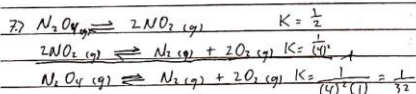 7.) N₂O₄(g) ⇌ 2NO₂(g) K = 1/2
2NO₂(g) ⇌ N₂(g) + 2O₂(g) K = 1/(4)²
N₂O₄(g) ⇌ N₂(g) + 2O₂(g) K = 1/((4)²(1)) = 1/32